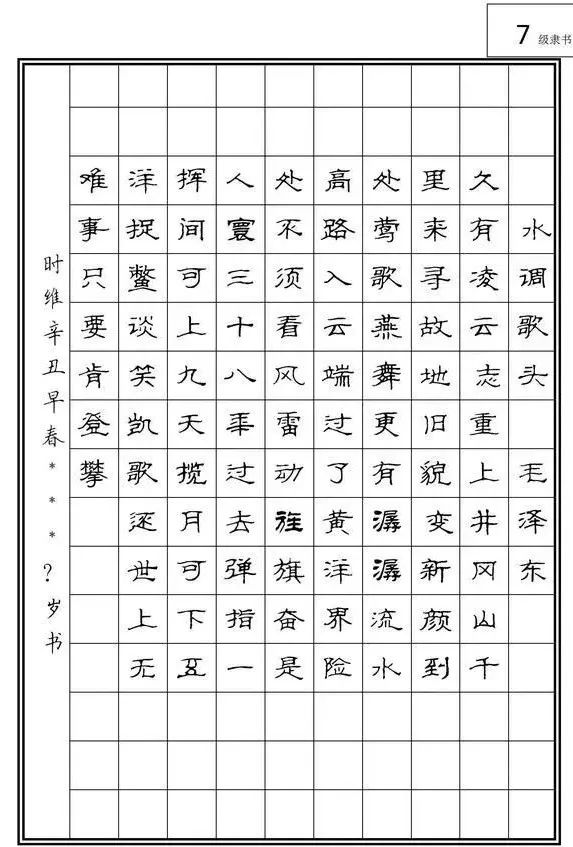 7 级隶书
水调歌头 毛泽东
久有凌云志重上井冈山千
里来寻故地旧貌变新颜到
处莺歌燕舞更有潺潺流水
高路入云端过了黄洋界险
处不须看风雷动旌旗奋是
人寰三十八年过去弹指一
挥间可上九天揽月可下五
洋捉鳖谈笑凯歌还世上无
难事只要肯登攀
时维辛丑早春***?岁书